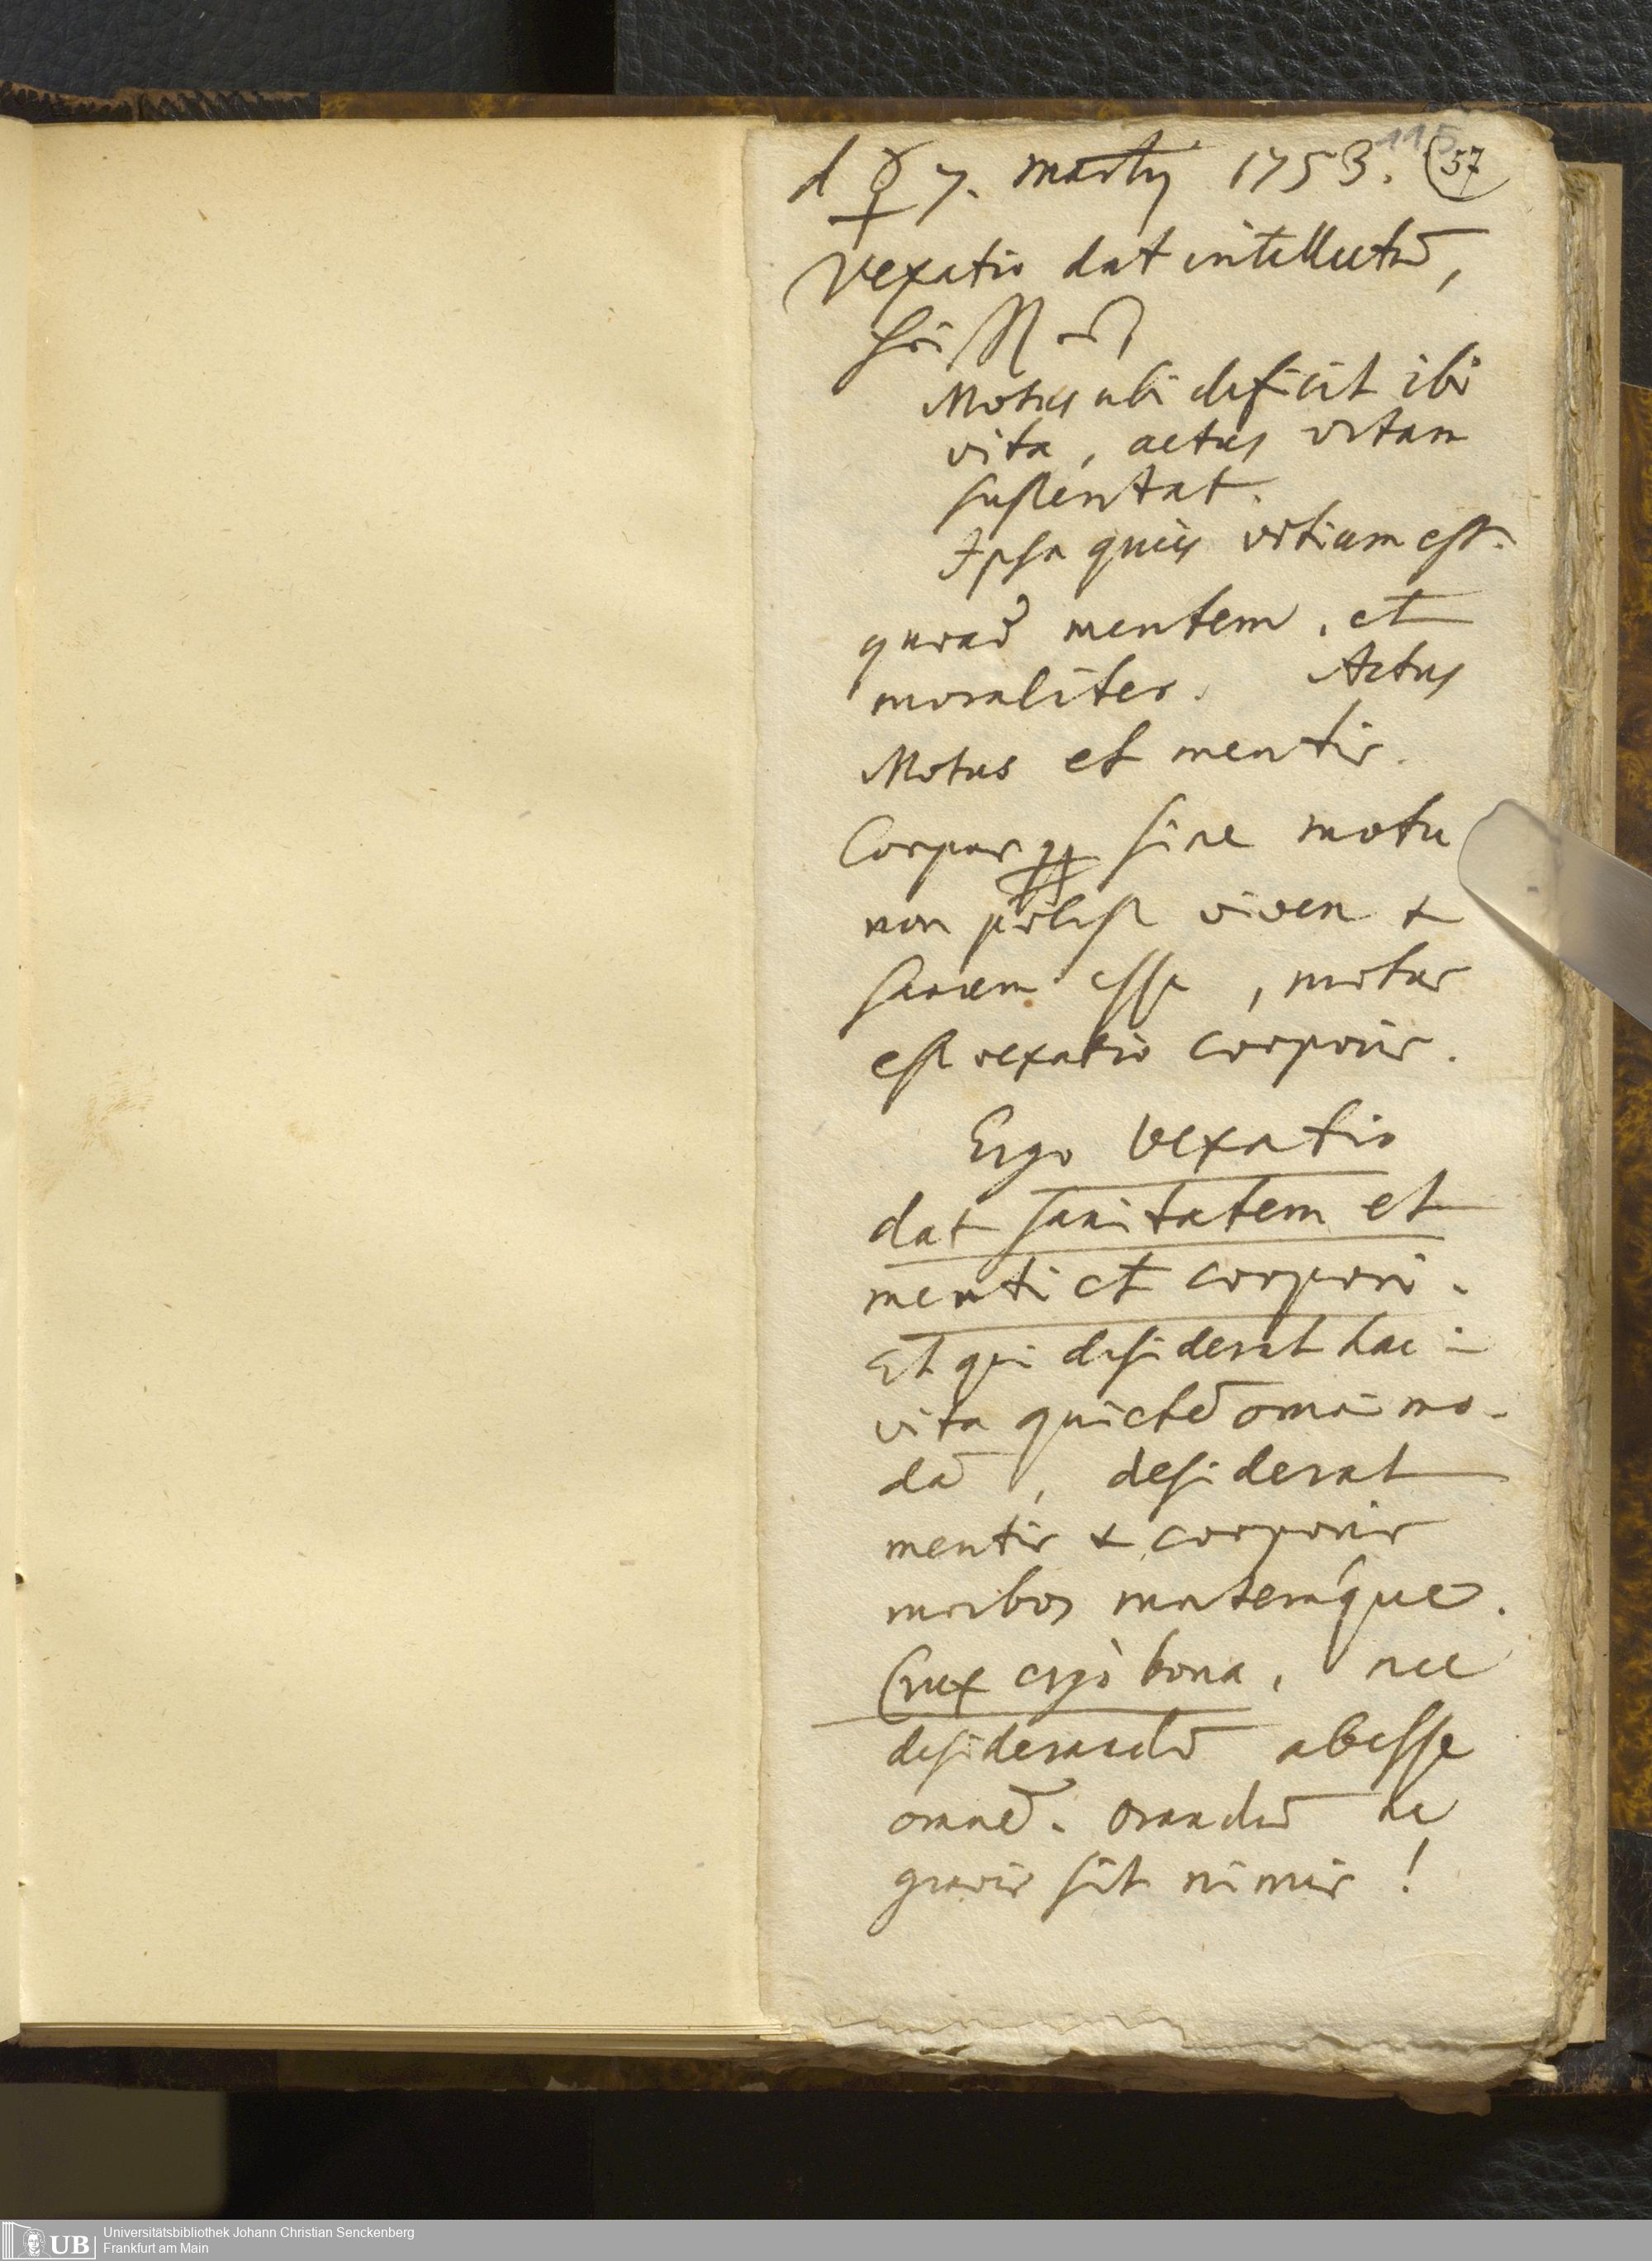 115
d ♀ 7. martij 1753. (57
Vexatio dat intellectū,
Motus ubi deficit ibi
vita, actus vitam
sustentat.
Ipsa quies vitium est.
quoad mentem, et
moraliter. Actus
Motus et mentis.
Corpus sine motu
non potest vivere &
sanum esse, motus
est vexatio corporis.
Ergo Vexatio
dat sanitatem et
menti et corpori.
Et qui desiderat hac ī
vita quietē omnimo-
dā, desiderat
mentis & corporis
morbos mortemque.
Crux ergò bona, nec
desiderandū abesse
omnē. orandū ne
gravis sit nimis!
UB Universitätsbibliothek Johann Christian Senckenberg
Frankfurt am Main